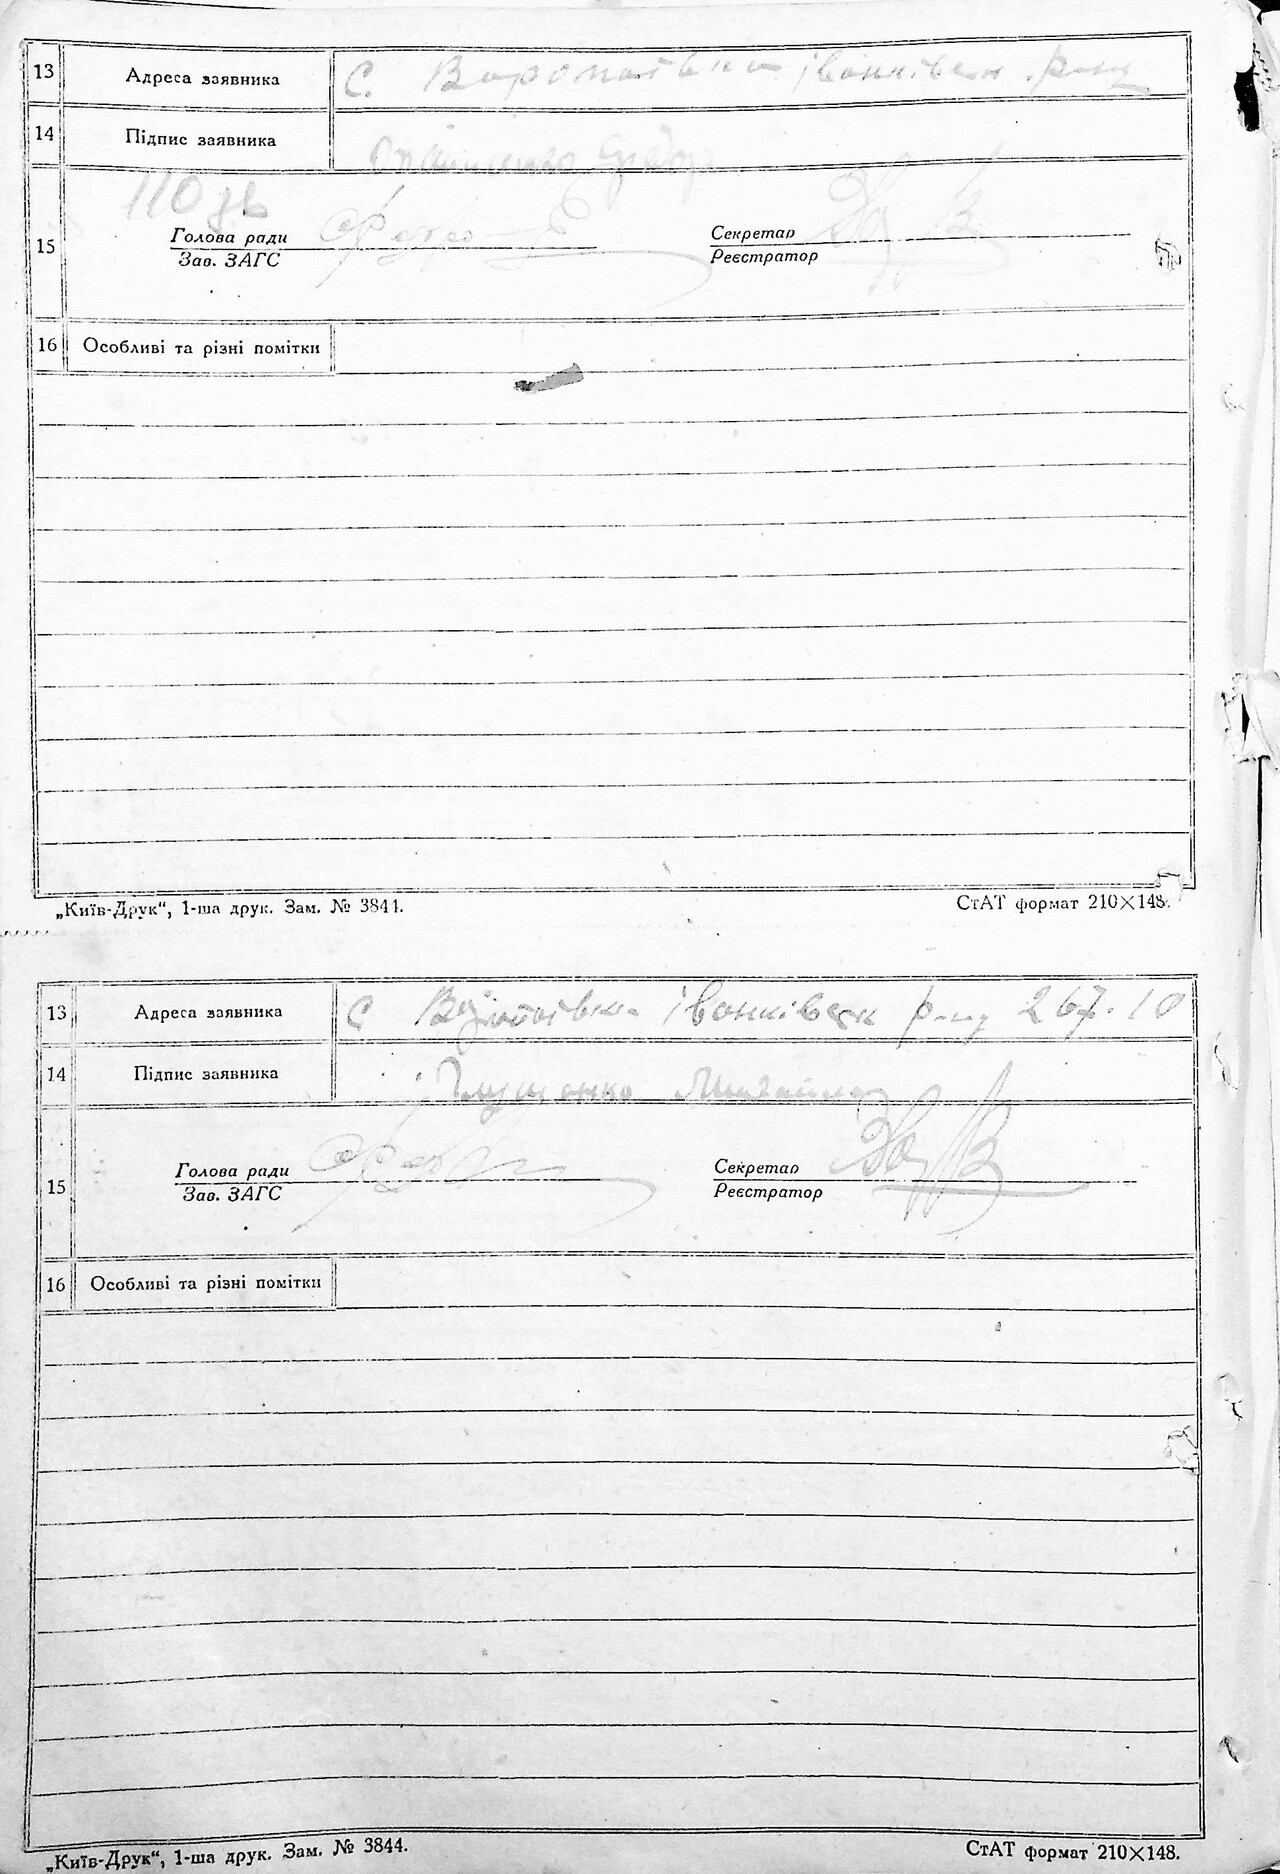 13 Адреса заявника С. Варопаївка іванківськ. р-ну
14 Підпис заявника
110 зв
15 Голова ради Секретар
Зав. ЗАГС Реєстратор
16 Особливі та різні помітки
„Київ-Друк“, 1-ша друк. Зам. № 3844. СтАТ формат 210×148.
13 Адреса заявника С іванківськ р-ну 267.10
14 Підпис заявника Глущенко Михайло
15 Голова ради Секретар
Зав. ЗАГС Реєстратор
16 Особливі та різні помітки
„Київ-Друк“, 1-ша друк. Зам. № 3844. СтАТ формат 210×148.